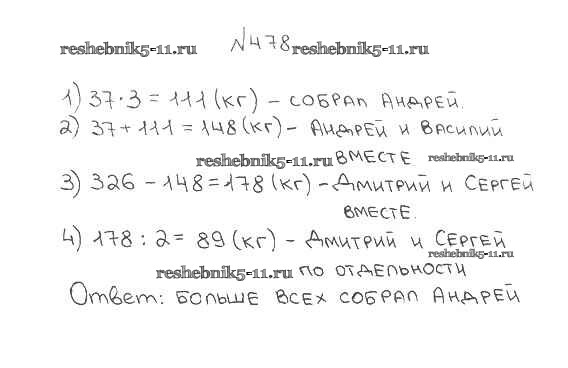 №478
reshebnik5-11.ru reshebnik5-11.ru
1) 37·3 = 111 (кг) – собрал Андрей.
2) 37 + 111 = 148 (кг) – Андрей и Василий
reshebnik5-11.ru вместе reshebnik5-11.ru
3) 326 – 148 = 178 (кг) – Дмитрий и Сергей
вместе.
4) 178 : 2 = 89 (кг) – Дмитрий и Сергей
reshebnik5-11.ru
reshebnik5-11.ru по отдельности
Ответ: больше всех собрал Андрей